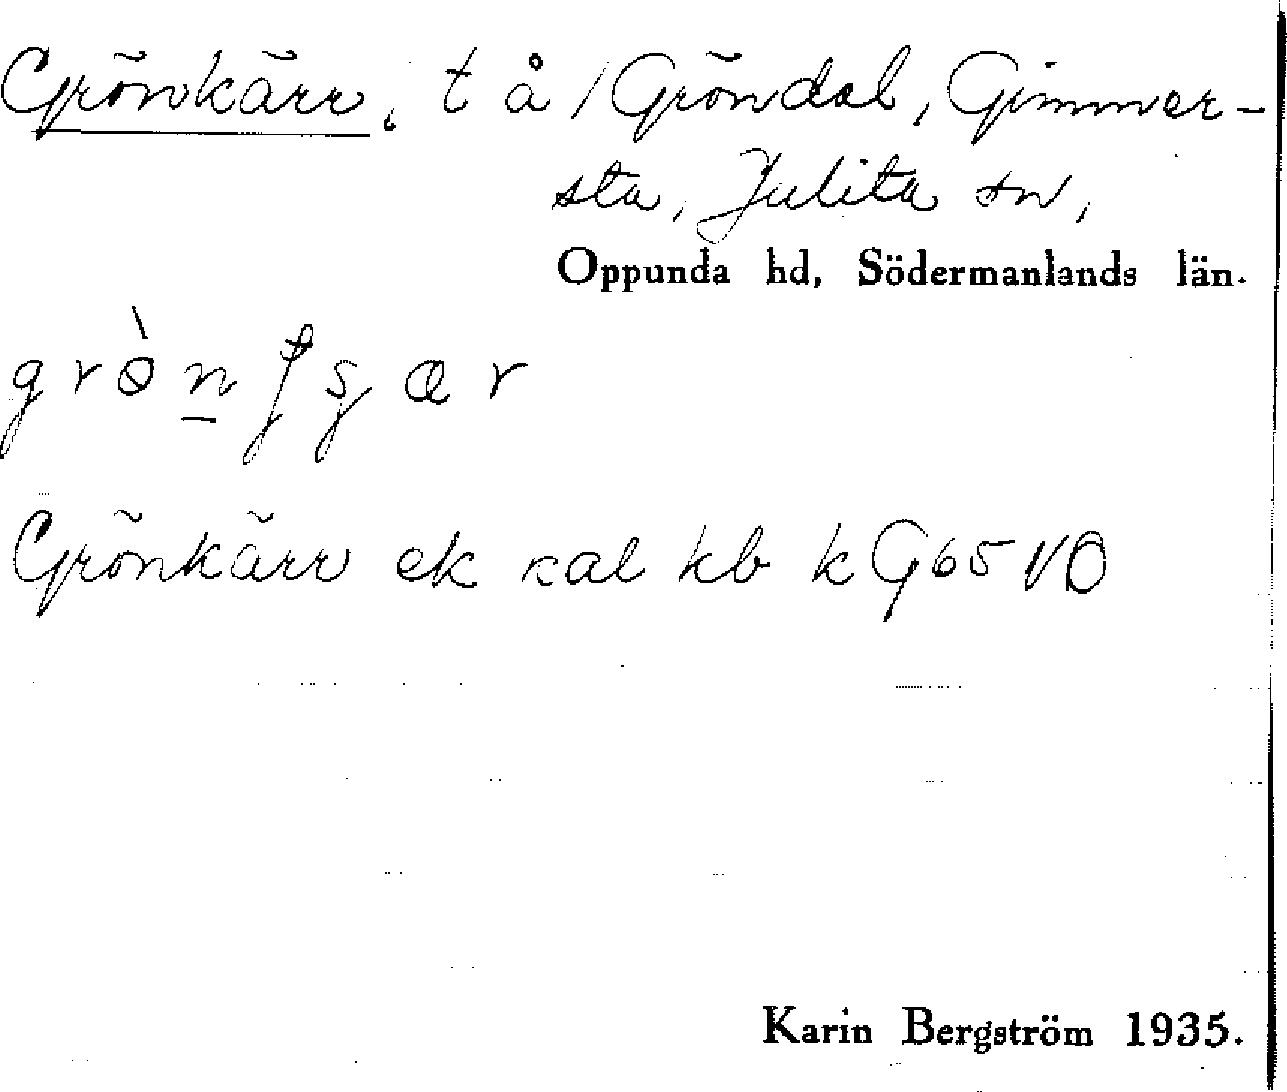 Grönkärr, t å / Gröndal, Gimmer-
sta, Julita sn,
Oppunda hd, Södermanlands län.
Grönkärr ek kal kb k G65 VO
Karin Bergström 1935.